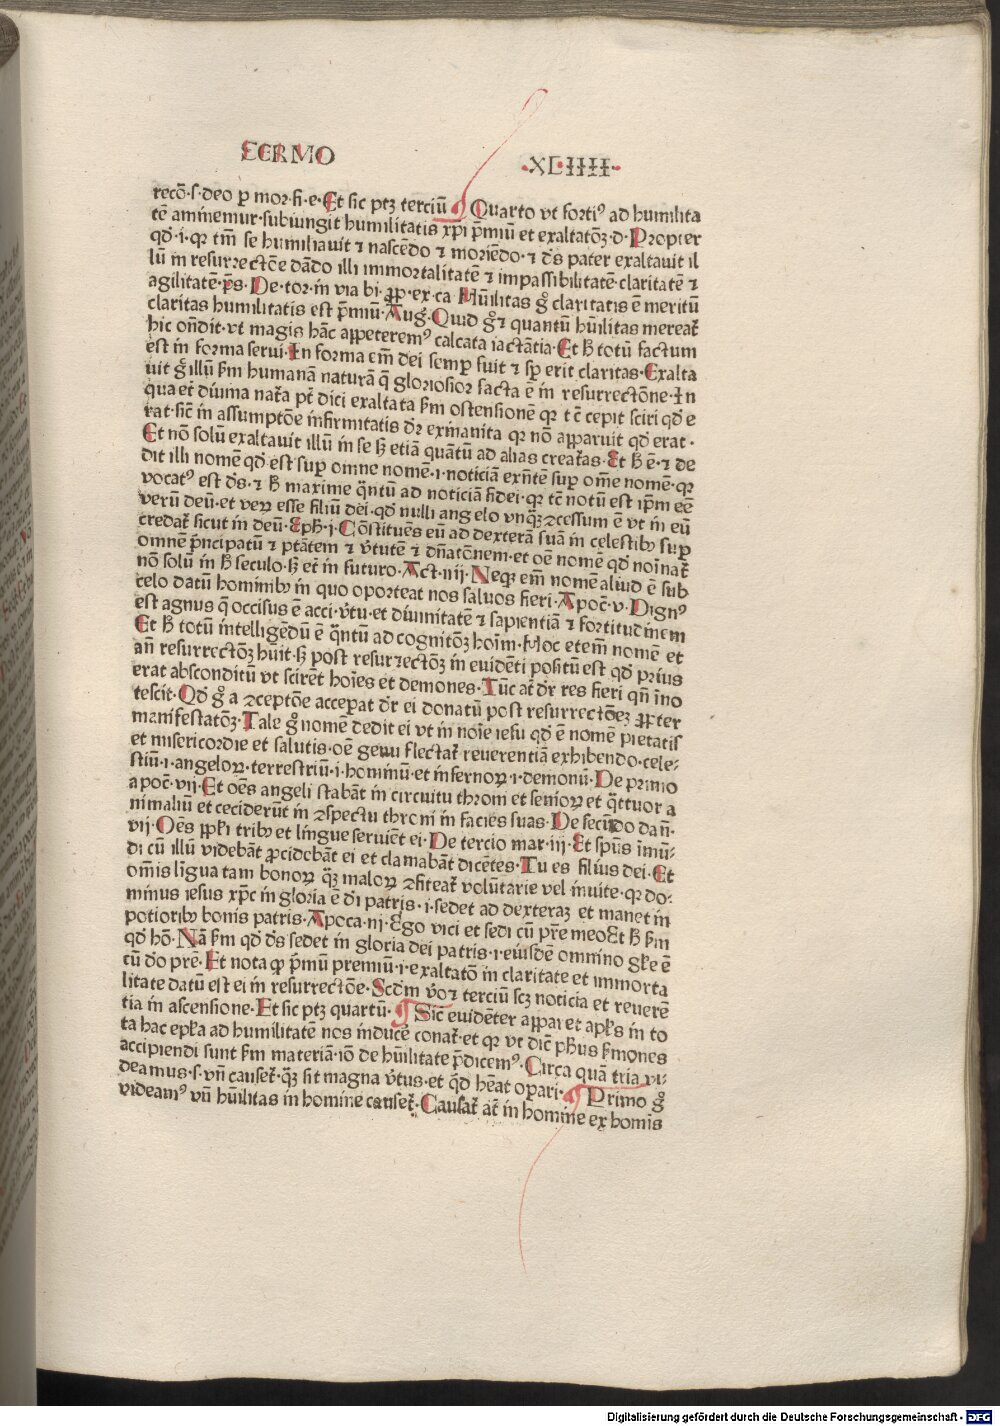 SERMO ·XLIIII·
recō·s·deo p mor·fi·e·Et sic ptꝫ terciū ¶ Quarto vt fortiꝰ ad humilita
tē aminemur·subiungit humilitatis xp̄i p̄miū et exaltatōꝫ·d·Propter
qd̓·i·qꝛ tm̄ se humiliauit ⁊ nascēdo ⁊ moriēdo·⁊ dn̄s pater exaltauit il
lū in resurrectōe dādo illi immortalitatē ⁊ impassibilitatē·claritatē ⁊
agilitatē·p̄s·De·tor·in via bi·ꝓp·ex·ca Hūilitas gͦ claritatis ē meritū
claritas humilitatis est p̄miū·Augͦ·Quid gͦ ⁊ quantū hūilitas mereat᷑
hic on̄dit·vt magis hāc appeteremꝰ calcata iactātia·Et h̓ totū factum
est in forma serui·In forma em̄ dei semp̲ fuit ⁊ sp̲ erit claritas·Exalta
uit gͦ illū s̓m humanā naturā q̄ gloriosior facta ē in resurrectōne·In
qua et diuina nat᷑a pt̄ dici exaltata s̓m ostensionē qꝛ tc̄ cepit sciri qd̓ e
rat·sic̄ in assumptōe infirmitatis dr̄ exinanita qꝛ nō apparuit qd̓ erat·
Et nō solū exaltauit illū in se sꝫ etiā quātū ad alias creat᷑as·Et h̓ ē·⁊ de
dit illi nomē qd̓ est sup̲ omne nomē·i·noticiā exn̄tē sup̲ om̄e nomē·qꝛ
vocatꝰ est dn̄s·⁊ h̓ maxime q̄ntū ad noticiā fidei·qꝛ tē notū est ip̄m eē
verū deū·et veꝝ esse filiū dei·qd̓ nulli angelo vnqꝫ ꝯcessum ē vt in eū
credat᷑ sicut in deū·Eph̓·i·Cōstituēs eū ad dexterā suā in celestibꝰ sup̲
omnē p̄ncipatū ⁊ ptātem ⁊ v̓tutē ⁊ dn̄atōnem·et oē nomē qd̓ noīnat᷑
nō solū in h̓ seculo·sꝫ et̄ in futuro·Act·iiij·Neqꝫ em̄ nomē aliud ē sub
celo datū hominibꝰ in quo oporteat nos saluos fieri·Apoc̄·v·Dignꝰ
est agnus q̄ occisus ē acci·v̓tu·et diuinitatē ⁊ sapientiā ⁊ fortitudinem
Et h̓ totū intelligēdū ē q̄ntū ad cognitōꝫ hoīm·Hoc etem̄ nomē et
an̄ resurrectōꝫ hūit·sꝫ post resurrectōꝫ in euidēti positū est qd̓ prius
erat absconditū vt scirēt hoīes et demones·Tūc at᷑ dr̄ res fieri qn̄ īno
tescit·Qd̓ gͦ a ꝯceptōe accep̲at dr̄ ei donatū post resurrectōeꝫ ꝓpter
manifestatōꝫ·Tale gͦ nomē dedit ei vt in noīe iesu qd̓ ē nomē pietatis
et misericordie et salutis·oē genu flectat᷑ reuerentiā exhibendo·cele⸗
stiū·i·angeloꝝ·terrestriū·i·hominū·et infernoꝝ·i·demonū·De primo
apoc̄·vij·Et oēs angeli stabāt in circuitu throni et senioꝝ et q̄ttuor a
nimaliū et ceciderūt in ꝯspectu throni in facies suas·De secūdo dan̄·
vij·Oēs ppl̓i tribꝰ et lingue seruiēt ei·De tercio mar·iij·Et sp̄us īmū⸗
di cū illū videbāt ꝓcidebāt ei et clamabāt dicētes·Tu es filius dei·Et
om̄is līgua tam bonoꝝ qꝫ maloꝝ ꝯfiteat᷑ volūtarie vel inuite·qꝛ do⸗
minus iesus xp̄c in gloria ē di̓ patris·i·sedet ad dexteraꝫ et manet in
potioribꝰ bonis patris·Apoca·iij·Ego vici et sedi cū pr̄e meo Et h̓ s̓m
qd̓ hō·Nā s̓m qd̓ dn̄s sedet in gloria dei patris·i·eiusdē omnino gl̓ie ē
cū deo pr̄e·Et nota ꝙ p̄mū premiū·i·exaltatō in claritate et immorta
litate datū est ei in resurrectōe·Scd̄m v̓o ⁊ terciū scꝫ noticia et reuerē
tia in ascensione·Et sic ptꝫ quartū·¶ Sic̄ euidēter apparet apl̓s in to
ta hac epl̓a ad humilitatē nos inducē conat᷑·et qꝛ vt dic̄ ph̓us s̓mones
accipiendi sunt s̓m materiā·iō de hūilitate p̄dicemꝰ·Circa quā tria vi⸗
deamus·s·vn̄ causet᷑·qꝫ sit magna v̓tus·et qd̓ hēat op̲ari·¶ Primo gͦ
videamꝰ vn̄ hūilitas in homine causet᷑·Causat᷑ at᷑ in homine ex bonis
Digitalisierung gefördert durch die Deutsche Forschungsgemeinschaft - DFG